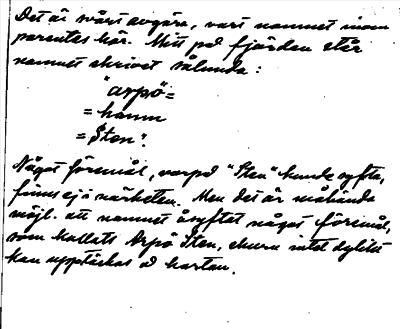 Det är svårt avgöra, vart namnet inom
parentes hör. Mitt på fjärden står
namnet skrivet sålunda:
"Arpö=
=hamn
=Sten".
Något föremål, varpå "Sten" kunde syfta,
finns ej i närheten. Men det är måhända
möjl. att namnet åsyftat något föremål,
som kallats Arpö Sten, ehuru intet dylikt
kan upptäckas å kartan.